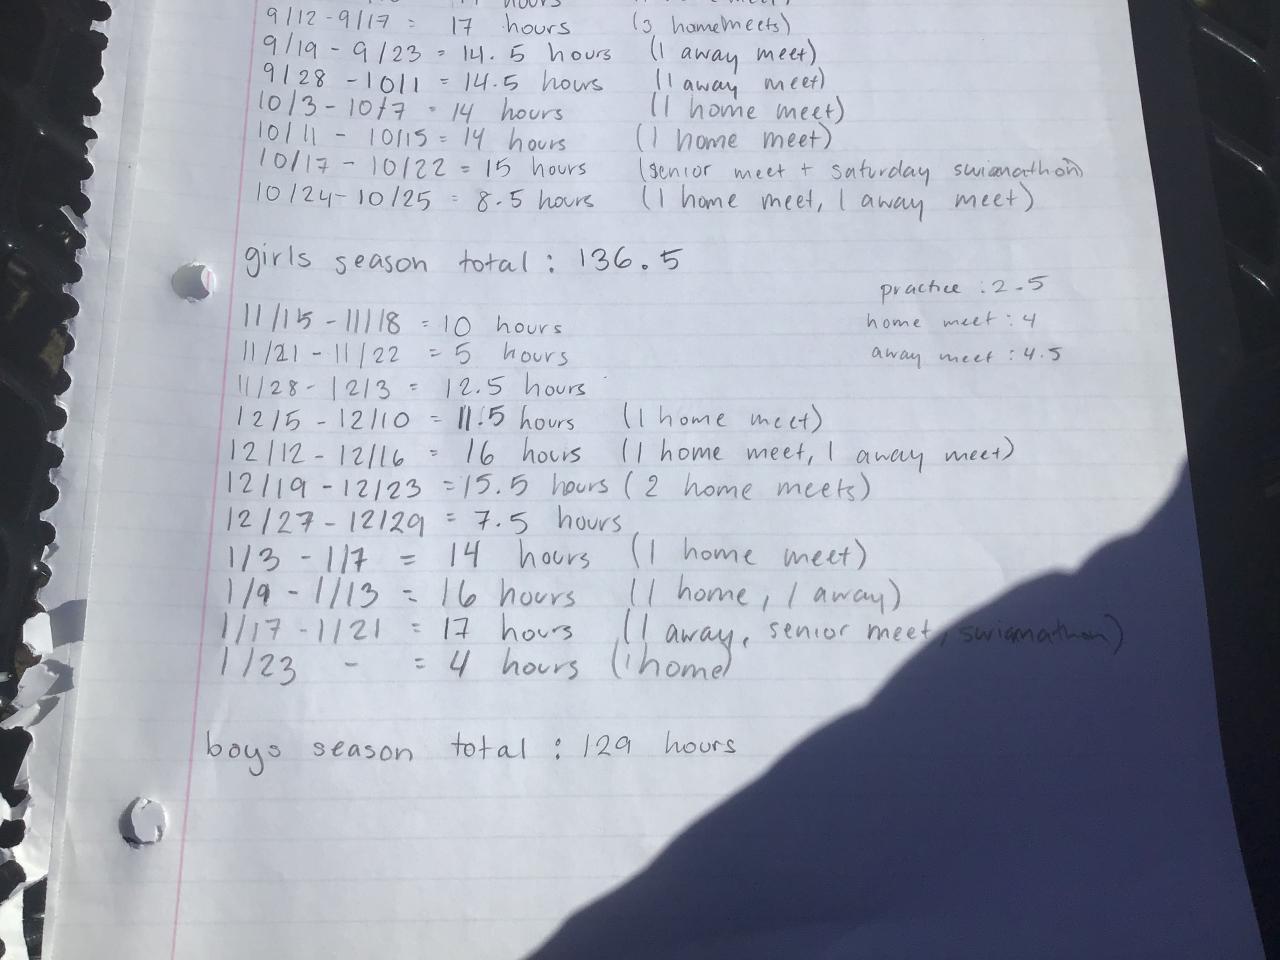 hours
9/12-9/17 = 17 hours (3 homemeets)
9/19 - 9/23 = 14.5 hours (1 away meet)
9/28 - 10/1 = 14.5 hours (1 away meet)
10/3 - 10/7 = 14 hours (1 home meet)
10/11 - 10/15 = 14 hours (1 home meet)
10/17 - 10/22 = 15 hours (senior meet + saturday swimathon)
10/24 - 10/25 = 8.5 hours (1 home meet, 1 away meet)
girls season total : 136.5
practice : 2.5
home meet : 4
away meet : 4.5
11/15 - 11/18 = 10 hours
11/21 - 11/22 = 5 hours
11/28 - 12/3 = 12.5 hours
12/5 - 12/10 = 11.5 hours (1 home meet)
12/12 - 12/16 = 16 hours (1 home meet, 1 away meet)
12/19 - 12/23 = 15.5 hours (2 home meets)
12/27 - 12/29 = 7.5 hours
1/3 - 1/7 = 14 hours (1 home meet)
1/9 - 1/13 = 16 hours (1 home, 1 away)
1/17 - 1/21 = 17 hours (1 away, senior meet, swimathon)
1/23 - = 4 hours (1 home)
boys season total : 129 hours